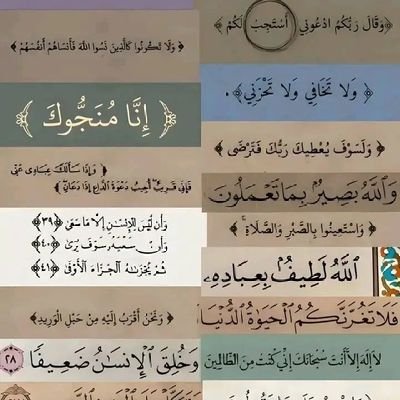 ﴿وَقَالَ رَبُّكُمُ ادْعُونِي أَسْتَجِبْ لَكُمْ ﴾
﴿ وَلَا تَخَافِي وَلَا تَحْزَنِي ﴾ .
﴿ وَلَسَوْفَ يُعْطِيكَ رَبُّكَ فَتَرْضَى ﴾
وَاللَّهُ بَصِيرٌ بِمَا تَعْمَلُونَ
﴿ وَاسْتَعِينُوا بِالصَّبْرِ وَالصَّلَاةِ ﴾
اللَّهُ لَطِيفٌ بِعِبَادِهِ
فَلَا تَغُرَّنَّكُمُ الْحَيَوٰةُ الدُّنْيَا
لَا إِلَهَ إِلَّا أَنتَ سُبْحَانَكَ إِنِّي كُنتُ مِنَ الظَّالِمِينَ
﴿ وَلَا تَكُونُوا كَالَّذِينَ نَسُوا اللَّهَ فَأَنسَاهُمْ أَنفُسَهُمْ ﴾
﴿ إِنَّا مُنَجُّوكَ ﴾
﴿ وَإِذَا سَأَلَكَ عِبَادِي عَنِّي
فَإِنِّي قَرِيبٌ أُجِيبُ دَعْوَةَ الدَّاعِ إِذَا دَعَانِ ﴾
وَأَن لَّيْسَ لِلْإِنسَٰنِ إِلَّا مَا سَعَىٰ ﴿٣٩﴾
وَأَنَّ سَعْيَهُ سَوْفَ يُرَىٰ ﴿٤٠﴾
ثُمَّ يُجْزَاهُ الْجَزَاءَ الْأَوْفَىٰ ﴿٤١﴾
﴿ وَنَحْنُ أَقْرَبُ إِلَيْهِ مِنْ حَبْلِ الْوَرِيدِ ﴾
وَخُلِقَ الْإِنسَٰنُ ضَعِيفًا ٢٨